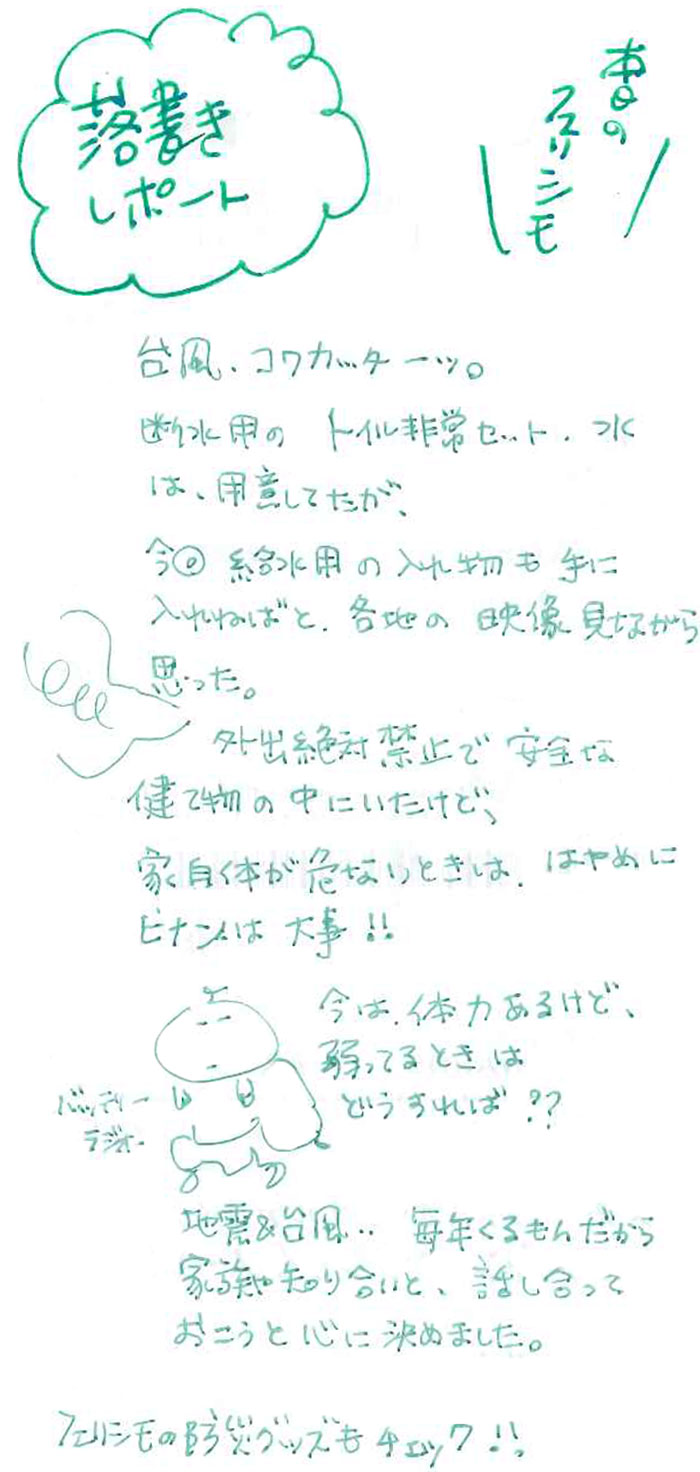 落書き
レポート
本日の
フェリシモ
台風、コワカッターッ。
断水用の トイレ非常セット、水
は、用意してたが、
今回 給水用の入れ物も手に
入れねばと、各地の 映像見ながら
思った。
外出絶対禁止で 安全な
建て物の中にいたけど、
家自体が危ないときは、はやめに
ヒナンは 大事!!
今は、体力あるけど、
弱ってるときは
どうすれば??
バッテリー
ラジオ
地震&台風‥ 毎年くるもんだから
家族や知り合いと、話し合って
おこうと心に決めました。
フェリシモの防災グッズもチェック!!